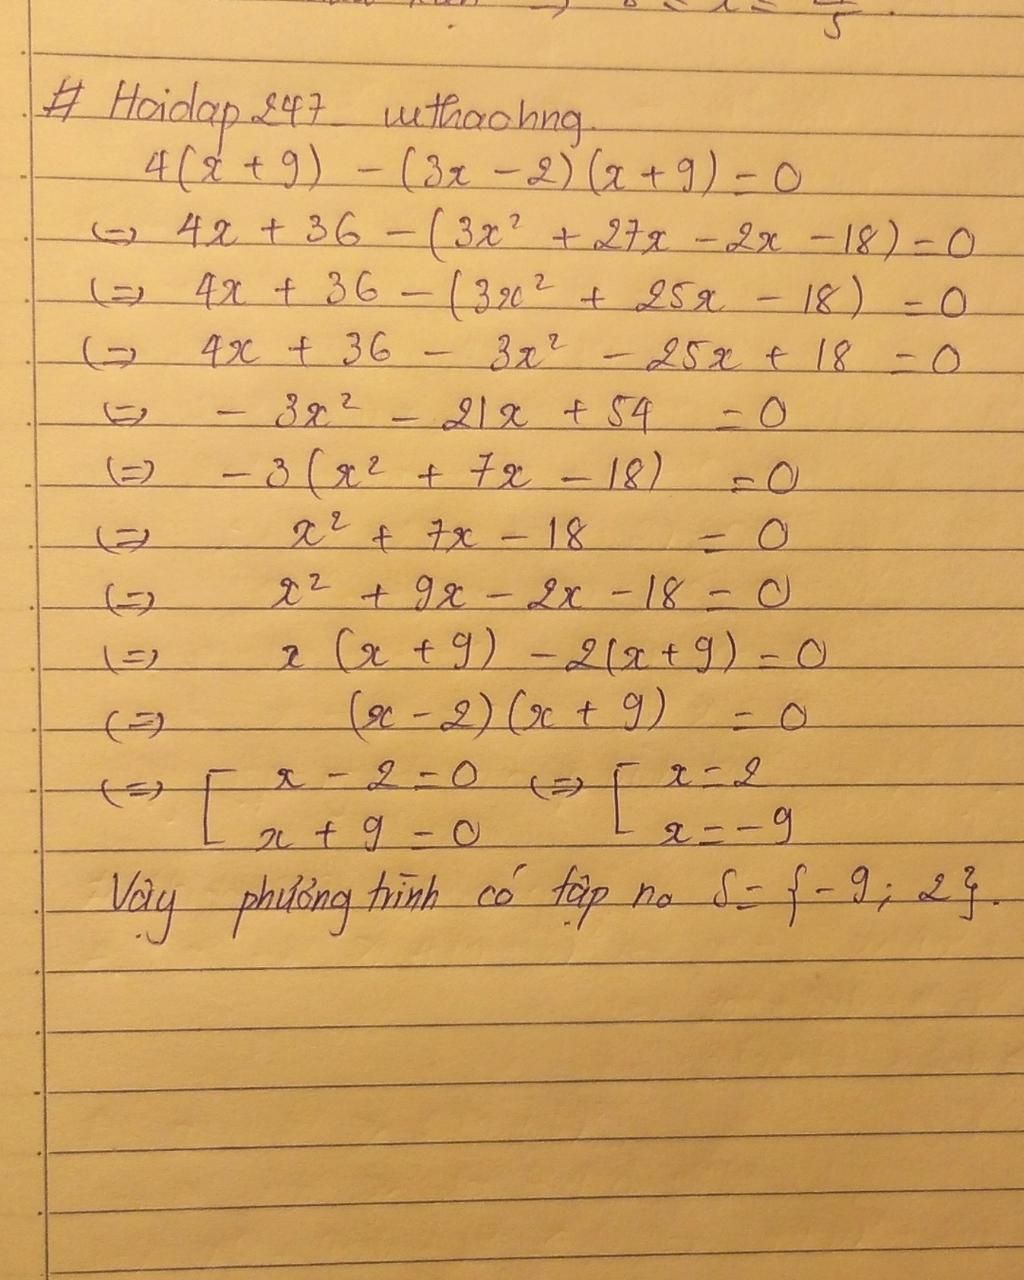 5
# Hoidap 247 wthaohng.
4(x + 9) - (3x - 2)(x + 9) = 0
(=) 4x + 36 - (3x² + 27x - 2x - 18) = 0
(=) 4x + 36 - (3x² + 25x - 18) = 0
(=) 4x + 36 - 3x² - 25x + 18 = 0
(=) - 3x² - 21x + 54 = 0
(=) - 3(x² + 7x - 18) = 0
(=) x² + 7x - 18 = 0
(=) x² + 9x - 2x - 18 = 0
(=) x (x + 9) - 2(x + 9) = 0
(=) (x - 2)(x + 9) = 0
(=) [ x - 2 = 0 (=) [ x = 2
x + 9 = 0 x = - 9
Vậy phương trình có tập no S = { - 9 ; 2 }.